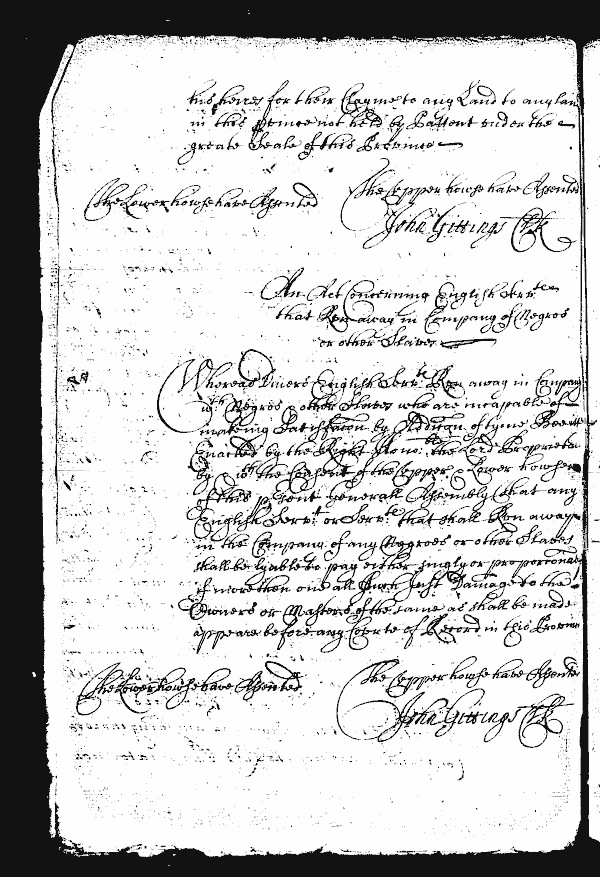 his heires for their Clayme to any Land to any lan
in this Prince not held by Pattent under the
greate Seale of this Province
The Lower howse have Assented
The Upper howse have Assented
John Gittings Clk
An Act Concerning English Servts
that Run away in Company of Negros
or other Slaves
Whereas Divers English Servts Run away in Company
wth Negros & other Slaves who are incapable of
makeing Satisfaccon by Addicon of tyme Bee itt
Enacted by the Right Hono:ble the Lord Proprieta
by & wth the Consent of the Upper & Lower howse
of this pesent Generall Assembly that any
English Servt: or Servts: that shall Run away
in the Company of any Negroes or other Slaves
shall be lyable to pay either singly or proportional
if more then one all such Just Damage to the
Owners or Masters of the same as shall be made
appeare before any Courte of Record in this Provin
The Lower howse have Assented
The Upper howse have Assented
John Gittings Clk